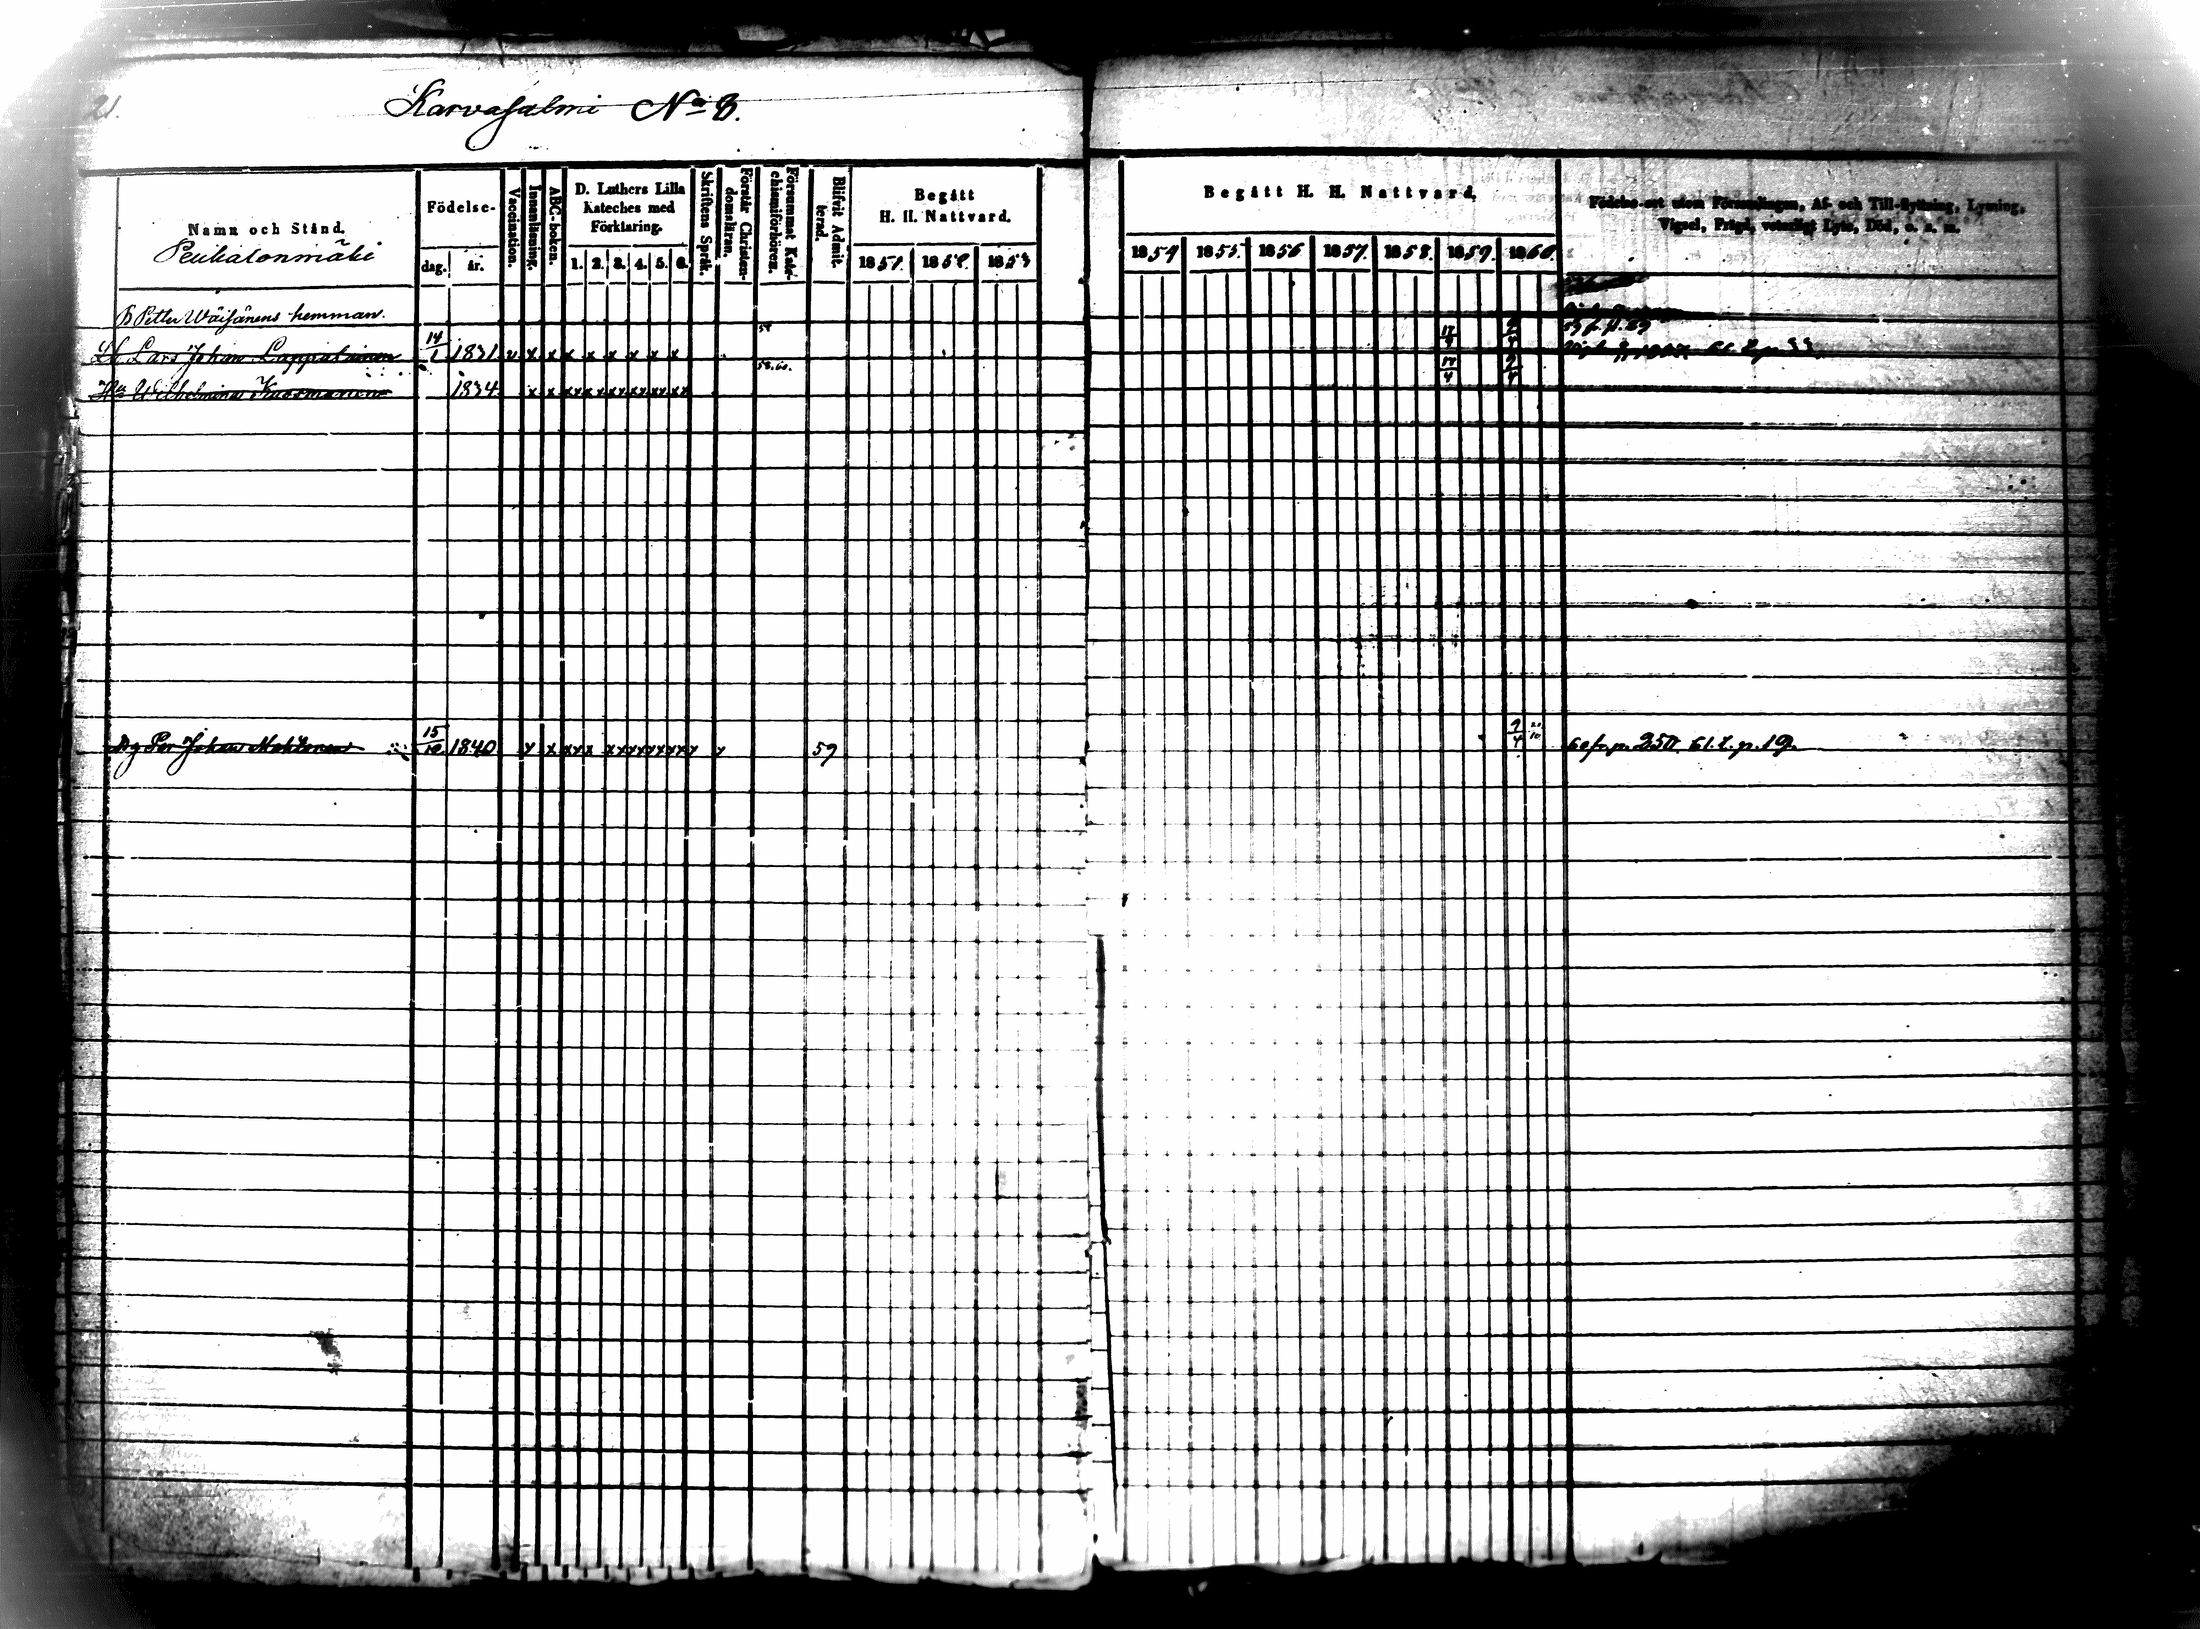 21.
Karvasalmi No 8.
Namn och Stånd.
Födelse-
dag. år.
Vaccination.
Innanläsning.
ABC-boken.
D. Luthers Lilla
Kateches med
Förklaring.
1. 2. 3. 4. 5. 6.
Skriftens Språk.
Förstår Christen-
domsläran.
Försummat Kate-
chismiförhören.
Blifvit Admit-
terad.
Begått
H. H. Nattvard.
1851. 1852. 1853
Begått H. H. Nattvard.
1854 1855. 1856 1857. 1858. 1859. 1860.
Födelse-ort utom Församlingen, Af- och Till-flyttning, Lysning,
Vigsel, Frägd, veterligt Lyte, Död, o. s. m.
Petter Wäisänens hemman.
Lars Johan Lappalainen 14/1 1831 v x x x x x x x x 58 17/4
Hu Wilhelmina Kuosmanen 1834 x x xx xx xx xx xx xx 58.60. 17/4 9/4
Dg Per Johan 15/12 1840 x x xxx xxxxxxxxx x 59 9/4 60 fr. p. 250. 61. t. p. 19.